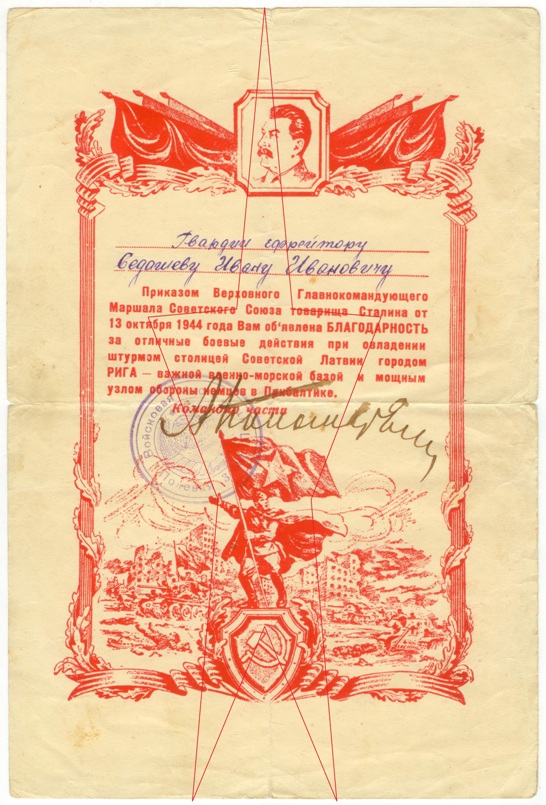 Гвардии ефрейтору
Седошеву Ивану Ивановичу
Приказом Верховного Главнокомандующего
Маршала Советского Союза товарища Сталина от
13 октября 1944 года Вам об'явлена БЛАГОДАРНОСТЬ
за отличные боевые действия при овладении
штурмом столицей Советской Латвии городом
РИГА — важной военно-морской базой и мощным
узлом обороны немцев в Прибалтике.
Командир части
Войсковая
Полевая